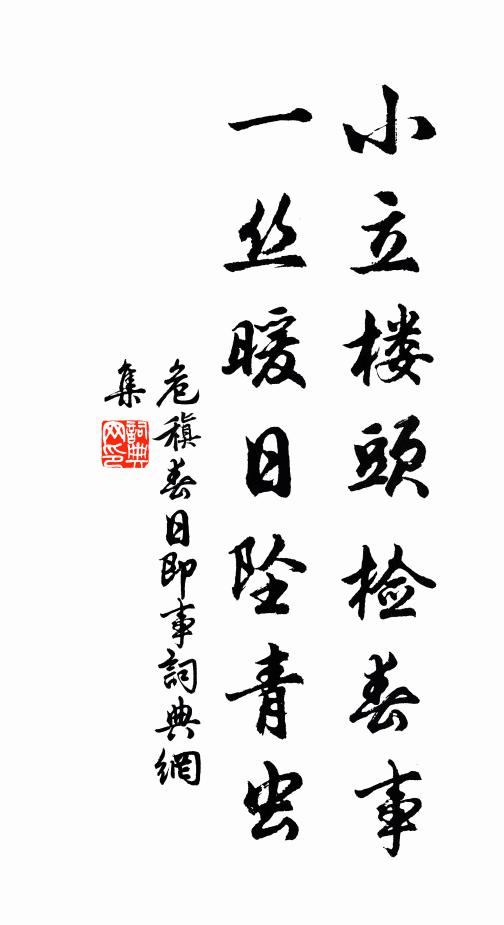 小立楼頭检春事
一丝暖日坠青虫
危稹春日即事詞典網
集
詞典
网印